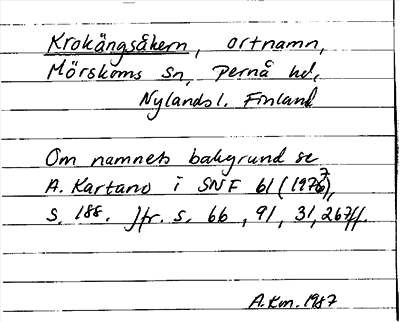 Krokängsåkern, ortnamn,
Mörskoms sn, Pernå hd,
Nylands l. Finland
Om namnets bakgrund se
A. Kartano i SNF 61 (1976),
s. 188. Jfr. s. 66, 91, 31, 267ff.
A.Km. 1987